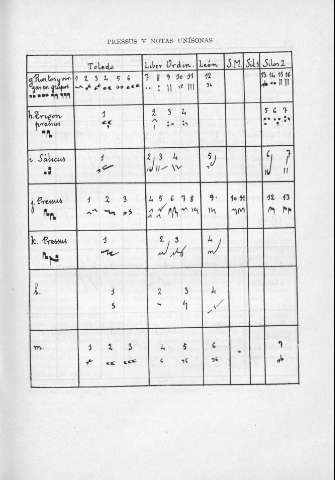 PRESSUS Y NOTAS UNÍSONAS
Toledo Liber Ordin. León S.M. Sils Silos 2
g. Puntos y uncus en grupos 1 2 3 4 5 6 7 8 9 10 11 12 13 14 15 16
h. Trigon pressus 1 2 3 4 5 6 7
i. Sálicus 1 2 3 4 5 6 7
j. Pressus 1 2 3 4 5 6 7 8 9 10 11 12 13
k. Pressus 1 2 3 4
l. 1 2 3 4
m. 1 2 3 4 5 6 9